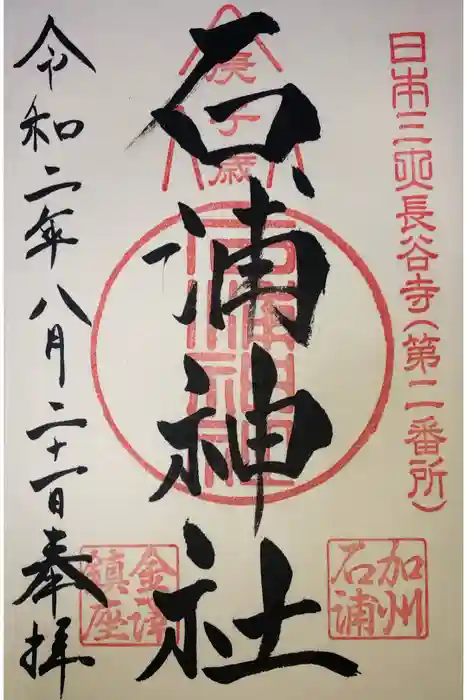 日本三所長谷寺(第二番所)
庚子歳
石浦神社
石浦神社
加州
石浦
金澤
鎮座
令和二年八月二十一日奉拝